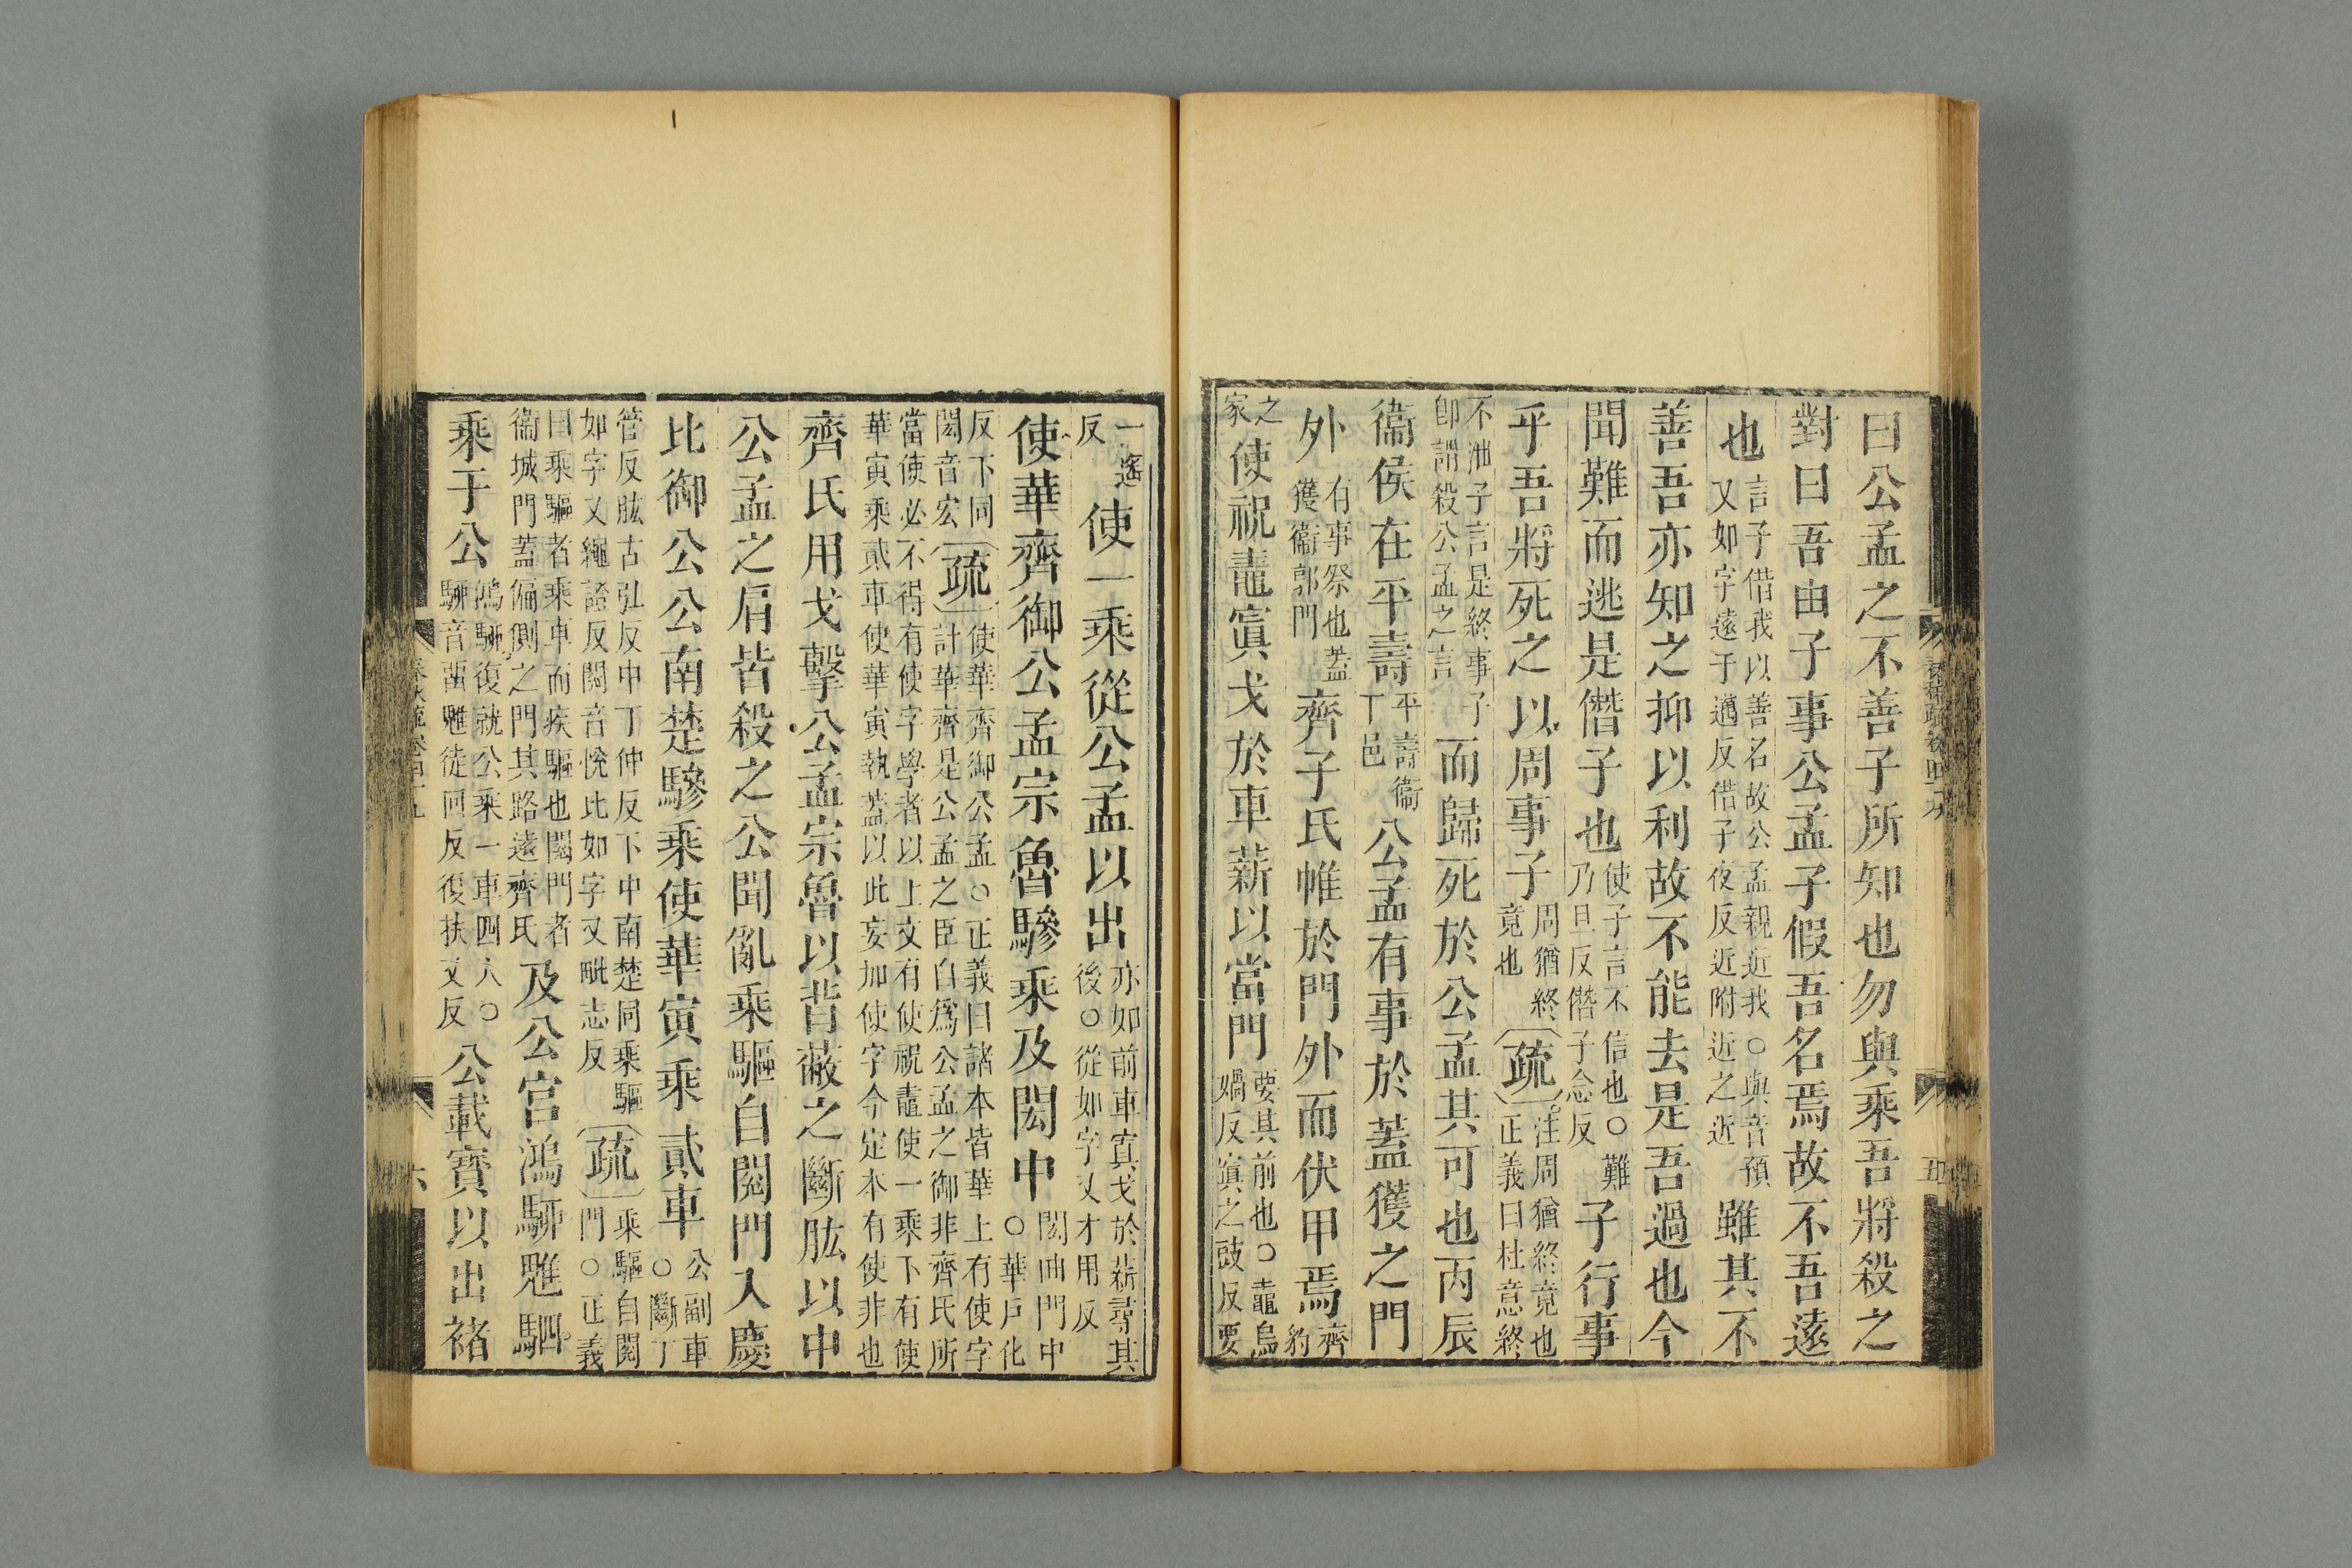 曰公孟之不善子所知也勿與乘吾將殺之
對曰吾由子事公孟子假吾名焉故不吾遠
也言子借我以善名故公孟親近我○與音預又如字遠于邁反借子夜反近附近之近雖其不
善吾亦知之抑以利故不能去是吾過也今
聞難而逃是僭子也使子言不信也○難乃旦反僭子念反子行事
乎吾將死之以周事子周猶終竟也疏注周猶終竟也正義曰杜意終
不泄子言是終事子即謂殺公孟之言而歸死於公孟其可也丙辰
衞侯在平壽平壽衞下邑公孟有事於蓋獲之門
外有事祭也蓋獲衞郭門齊子氏帷於門外而伏甲焉齊豹
之家使祝鼃寘戈於車薪以當門要其前也○鼃烏媧反寘之豉反要
一遙反使一乘從公孟以出亦如前車寘戈於薪尋其後○從如字又才用反
使華齊御公孟宗魯驂乘及閎中閎曲門中○華戶化
反下同閎音宏疏使華齊御公孟○正義曰諸本皆華上有使字計華齊是公孟之臣自為公孟之御非齊氏所
當使必不得有使字學者以上文有使祝鼃使一乘下有使華寅乘貳車使華寅執蓋以此妄加使字今定本有使非也
齊氏用戈擊公孟宗魯以背蔽之斷肱以中
公孟之肩皆殺之公聞亂乘驅自閱門入慶
比御公公南楚驂乘使華寅乘貳車公副車○斷丁
管反肱古弘反中丁仲反下中南楚同乘驅如字又繩證反閱音悅比如字又毗志反疏乘驅自閱門○正義
曰乘驅者乘車而疾驅也閱門者衞城門蓋偏側之門其路遠齊氏及公宮鴻駵魋駟
乘于公鴻駵復就公乘一車四人○駵音留魋徒回反復扶又反公載寶以出褚
五
六